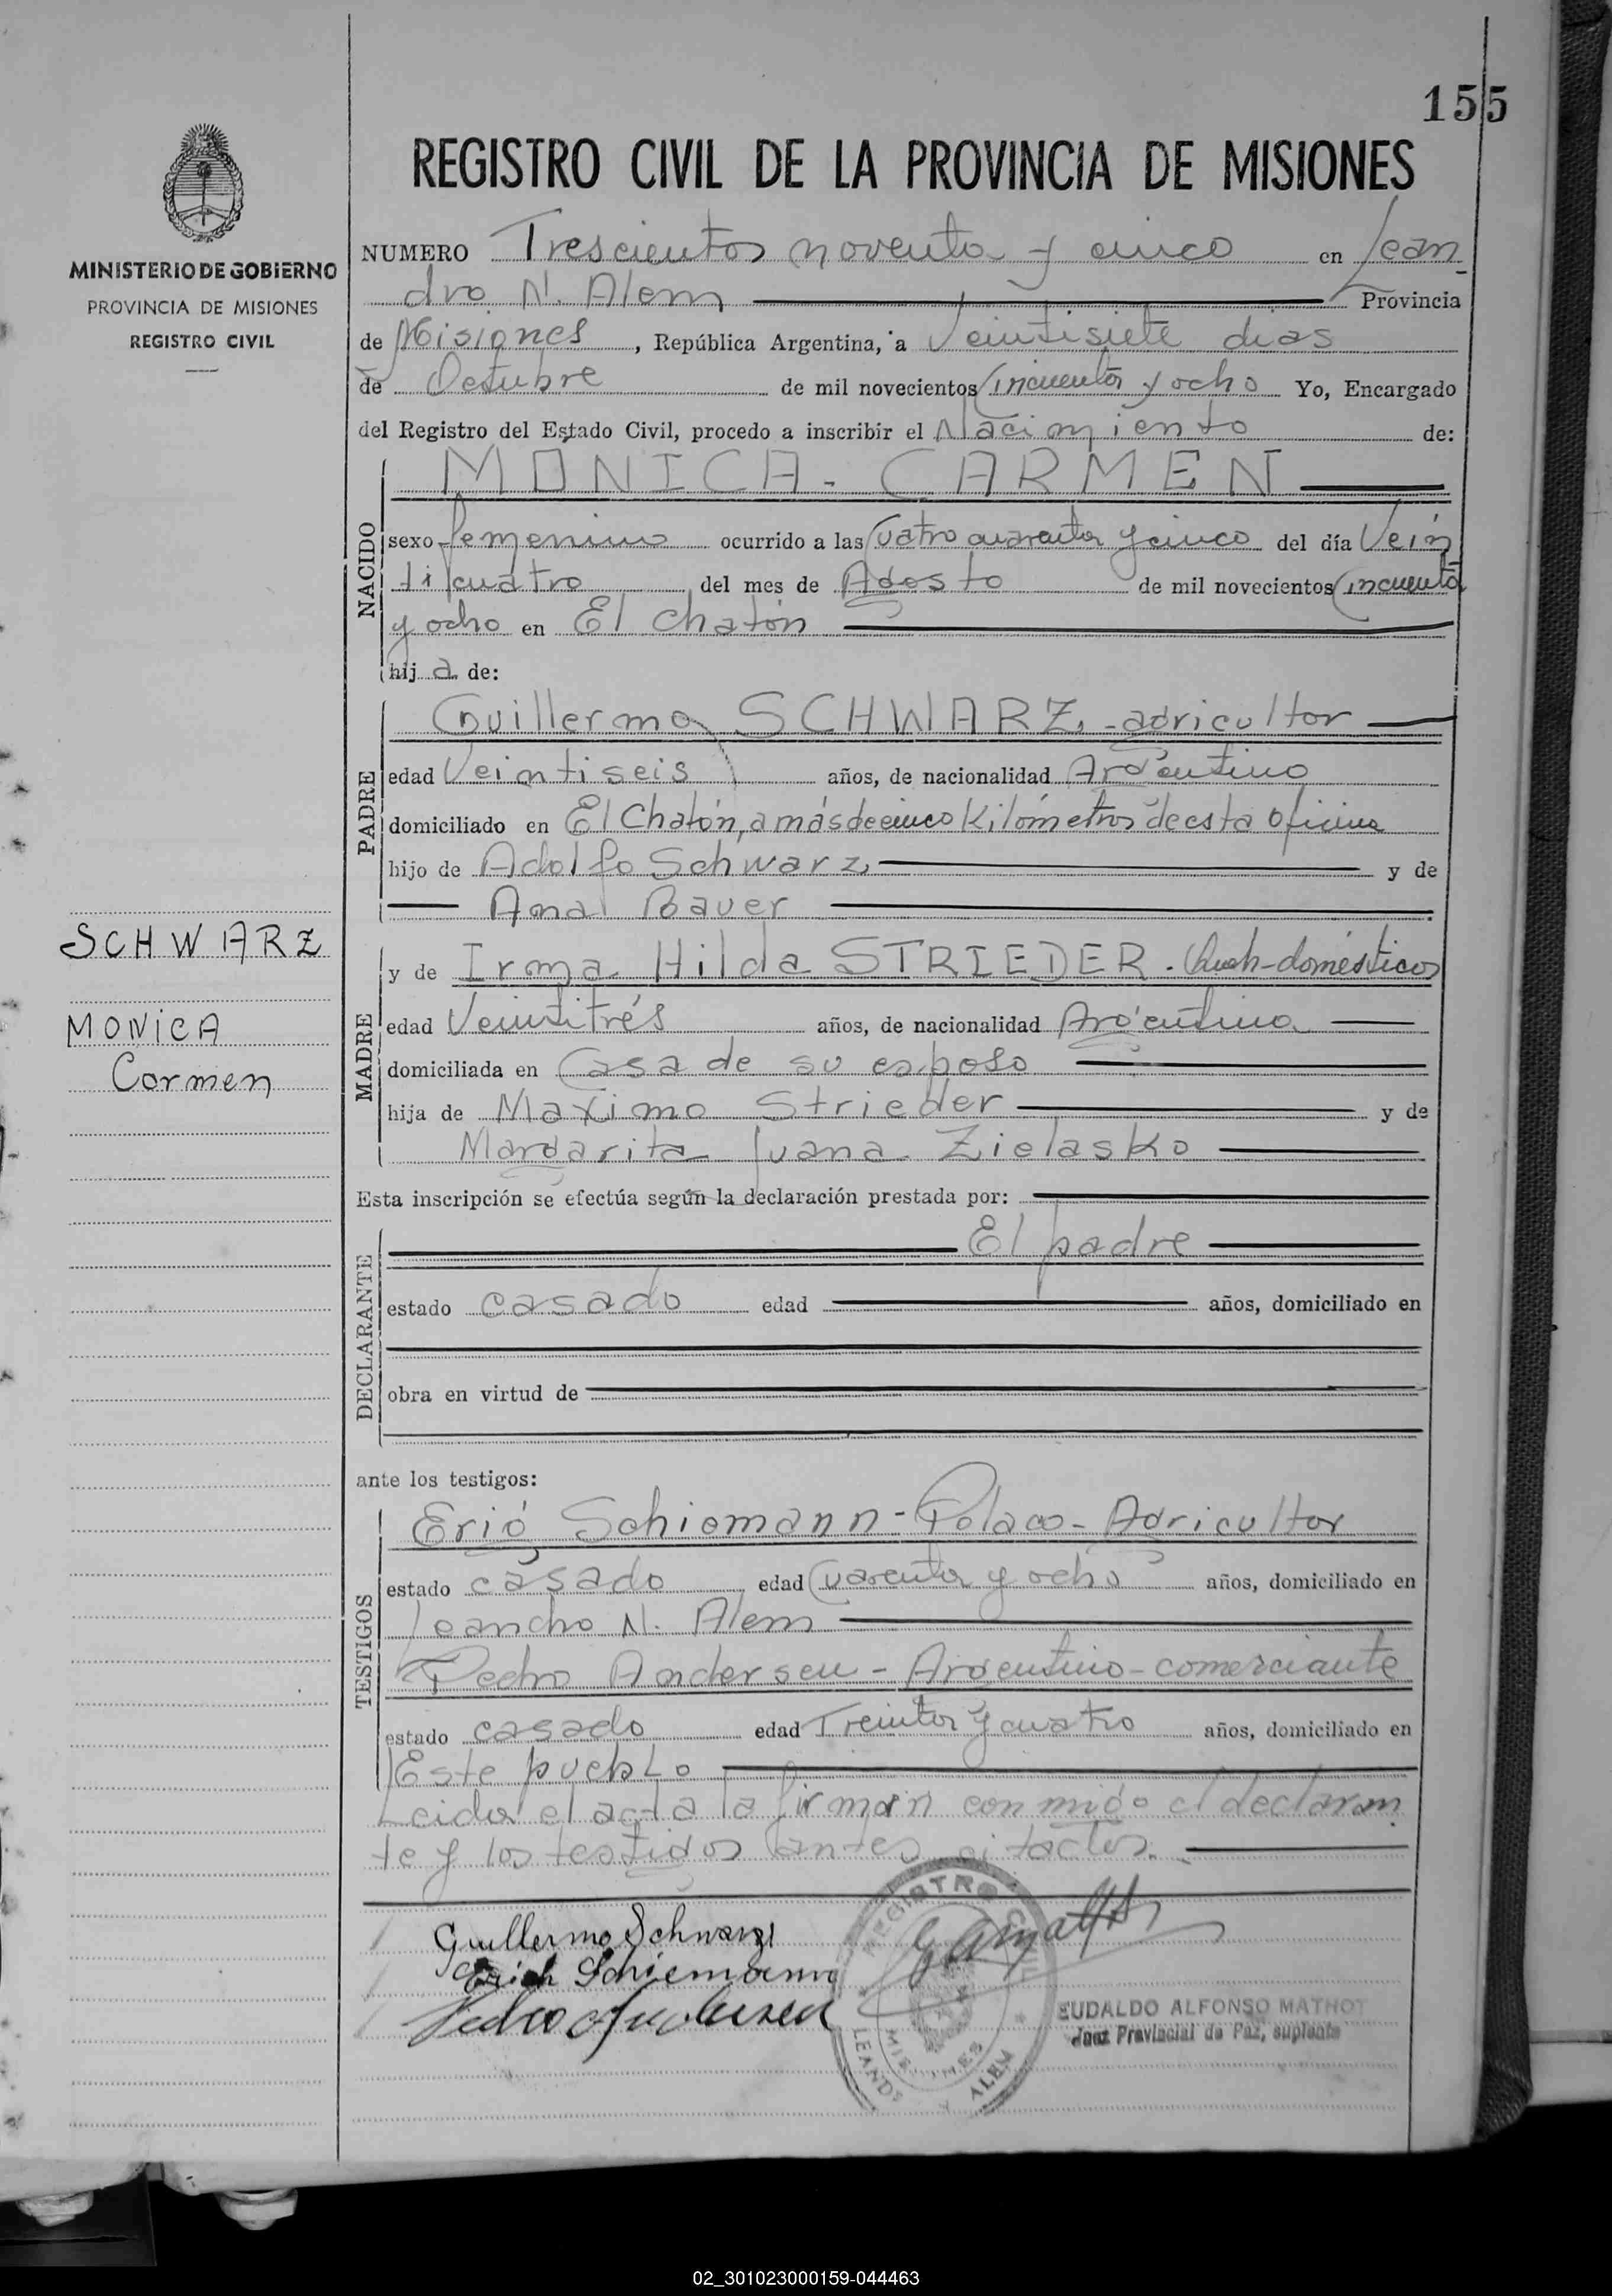 155
REGISTRO CIVIL DE LA PROVINCIA DE MISIONES
MINISTERIO DE GOBIERNO
PROVINCIA DE MISIONES
REGISTRO CIVIL
NUMERO Trescientos noventa y cinco en Lean
dro N. Alem Provincia
de Misiones, República Argentina, a Veintisiete dias
de Octubre de mil novecientos Cincuenta y ocho Yo, Encargado
del Registro del Estado Civil, procedo a inscribir el Nacimiento de:
MONICA - CARMEN
NACIDO
sexo femenino ocurrido a las Cuatro cuarenta y cinco del día Vein
ticuatro del mes de Agosto de mil novecientos Cincuenta
y ocho en El Chatón
hija de:
PADRE
Guillermo SCHWARZ - agricultor
edad Veintiseis años, de nacionalidad Argentino
domiciliado en El Chatón, a más de cinco Kilómetros de esta oficina
hijo de Adolfo Schwarz y de
Ana Bauer
SCHWARZ
MONICA
Carmen
MADRE
y de Irma Hilda STRIEDER. Queh-domésticos
edad Veintitrés años, de nacionalidad Argentina
domiciliada en Casa de su esposo
hija de Maximo Strieder y de
Margarita Juana Zielasko
Esta inscripción se efectúa según la declaración prestada por:
DECLARANTE
El padre
estado casado edad años, domiciliado en
obra en virtud de
ante los testigos:
TESTIGOS
Erig Schiemann - Polaco - Agricultor
estado casado edad Cuarenta y ocho años, domiciliado en
Leandro N. Alem
Pedro Andersen - Argentino - comerciante
estado casado edad Treinta y cuatro años, domiciliado en
Este pueblo
Leida el acta la firman conmigo el declaran
te y los testigos antes citados.
Guillermo Schwarz
Erich Schiemann
Pedro Andersen
REGISTRO CIVIL
MISIONES
LEANDRO N ALEM
EUDALDO ALFONSO MATHOT
Juez Provincial de Paz, suplente
02_301023000159-044463